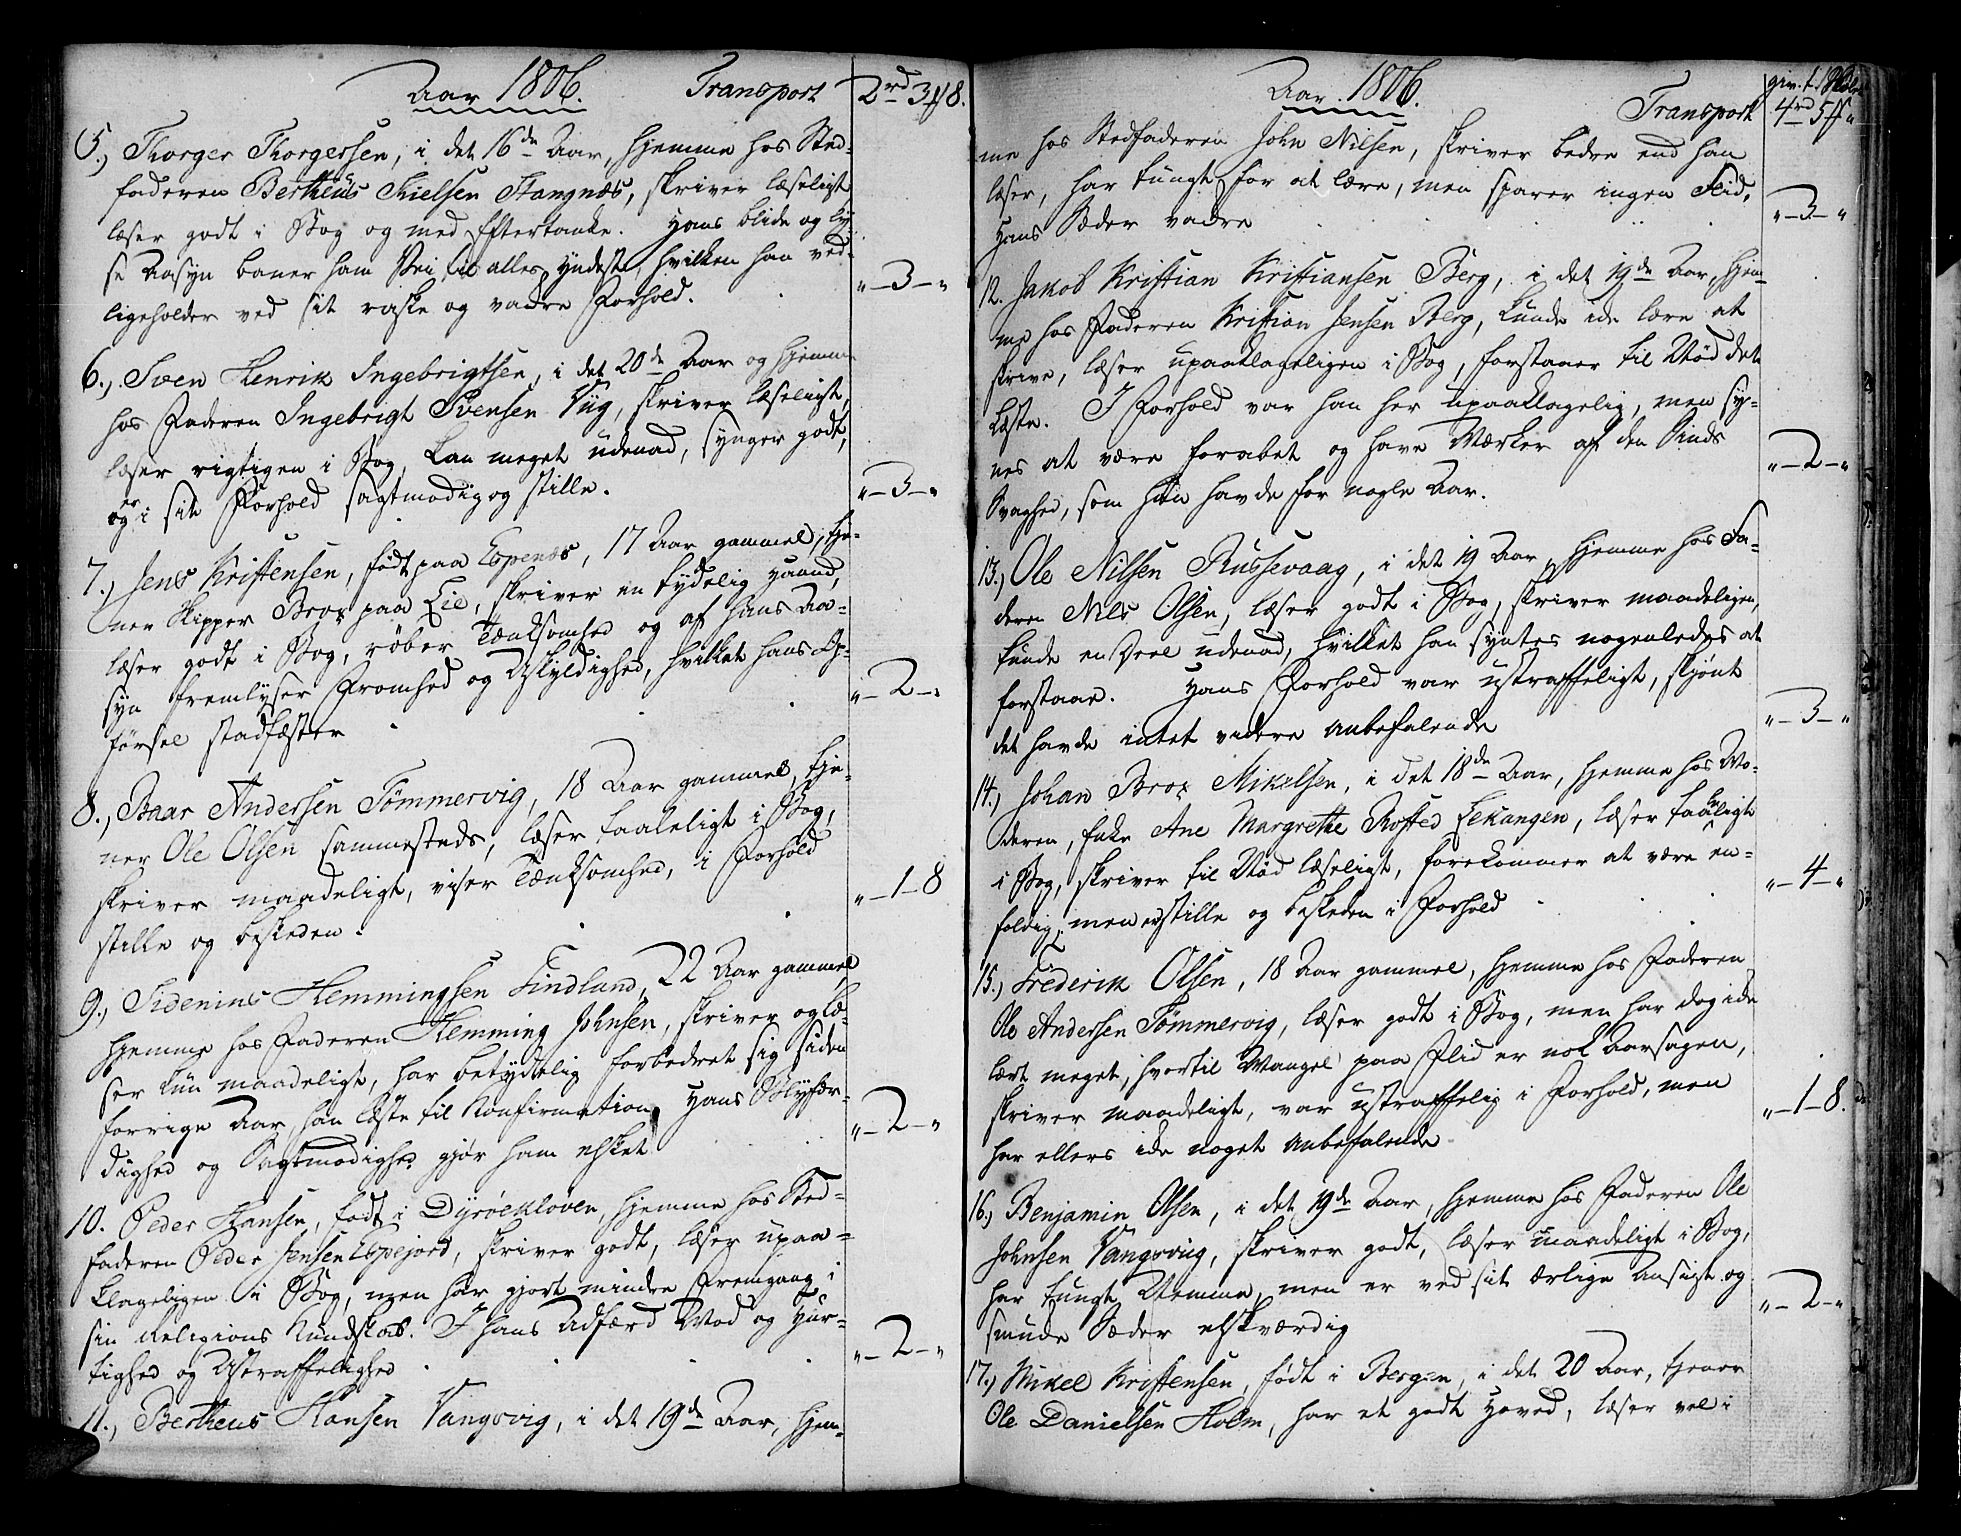 Aar 1806. Transport 2rd 3 ff 8.
5., Thorger Thorgersen, i det 16de Aar, hjemme hos Sted-
faderen Bertheus Thielsen Stangnæs, skriver læseligt
læser godt i Bog og med Eftertanke. Hans blide og ly-
se Aasyn baner ham Vei til alles Yndest, hvilken han ved-
ligeholder ved sit raske og vakre Forhold. "-3-"
6., Sven Henrik Ingebrigtsen, i det 20de Aar og hjemme
hos Faderen Ingebrigt Svensen Viig, skriver læseligt,
læser rigtigen i Bog, kan meget udenad, synger godt,
og er i sit Forhold sagtmodig og stille. "-3-"
7., Jens Kristensen, født paa Espenes, 17 Aar gammel, tje-
ner Skipper Brox paa Lie, skriver en tydelig Haand,
læser godt i Bog, røber Tænksomhed og af hans Aa-
syn fremlyser Fromhed og Uskyldighed, hvilket hans Op-
førsel stadfæster "-2-"
8., Baar Andersen Tømmervig, 18 Aar gammel, tje-
ner Ole Olsen sammesteds, læser taaleligt i Bog,
skriver maadeligt, viser Tænksomhed, i Forhold
stille og beskeden. "-1-8
9., Sidenius Hemmingsen Findland, 22 Aar gammel
hjemme hos Faderen Hemming Johnsen, skriver og læ-
ser kun maadeligt, har betydelig forbedret sig siden
forrige Aar han læste til Konfirmation. Hans Blyfær-
dighed og Sagtmodighed gjør ham elsket "-2-"
10. Peder Hansen, født i Dyrøekløven, hjemme hos Sted-
faderen Peder Jensen Espejord, skriver godt, læser upaa-
klageligen i Bog, men har gjort mindre Fremgang i
sin Religions Kundskab. I hans Adfærd Mod og Hur-
tighed og Ustraffelighed "-2-"
11., Bertheus Hansen Vangsvig, i det 19de Aar, hjem-
Aar 1806. Transport 4rd 5 ff "
me hos Stedfaderen John Nilsen, skriver bedre end han
læser, har tungt for at lære, men sparer ingen Flid,
Hans Sæder vakre "-3-"
12. Jakob Kristian Kristiansen Berg, i det 19de Aar, hjem-
me hos Faderen Kristian Jensen Berg, kunde ikke lære at
skrive, læser upaaklageligen i Bog, forstaaer til Nød det
læste. I Forhold var han her upaaklagelig, men sy-
nes at være forabet og have Mærker af den Sinds
Svaghed, som han havde for nogle Aar. "-2-"
13., Ole Nilsen Russevaag, i det 19 Aar, hjemme hos Fa-
deren Nils Olsen, læser godt i Bog, skriver maadeligen,
kunde en Deel udenad, hvilket han syntes nogenledes at
forstaae. Hans Forhold var ustraffeligt, skjønt
det havde intet videre anbefalende "-3-"
14., Johan Brox Mikelsen, i det 18de Aar, hjemme hos Mo-
deren, Enke Ane Margrethe Rosted Lekangen, læser taaleligt
i Bog, skriver til Nød læseligt, forekommer at være en-
foldig, men er stille og beskeden i Forhold "-4-"
15., Frederik Olsen, 18 Aar gammel, hjemme hos Faderen
Ole Andersen Tømmervig, læser godt i Bog, men har dog ikke
lært meget, hvortil Mangel paa Flid er nok Aarsagen,
skriver maadeligt, var ustraffelig i Forhold, men
har ellers ikke noget anbefalende "-1-8.
16., Benjamin Olsen, i det 19de Aar, hjemme hos Faderen Ole
Johnsen Vangsviig, skriver godt, læser maadeligt i Bog,
har tungt Nemme, men er ved sit ærlige Ansigt og
smukke Sæder elskværdig "-2-"
17., Mikel Kristensen, født i Bergen, i det 20 Aar, tjener
Ole Danielsen Holm, har et godt Hoved, læser vel i